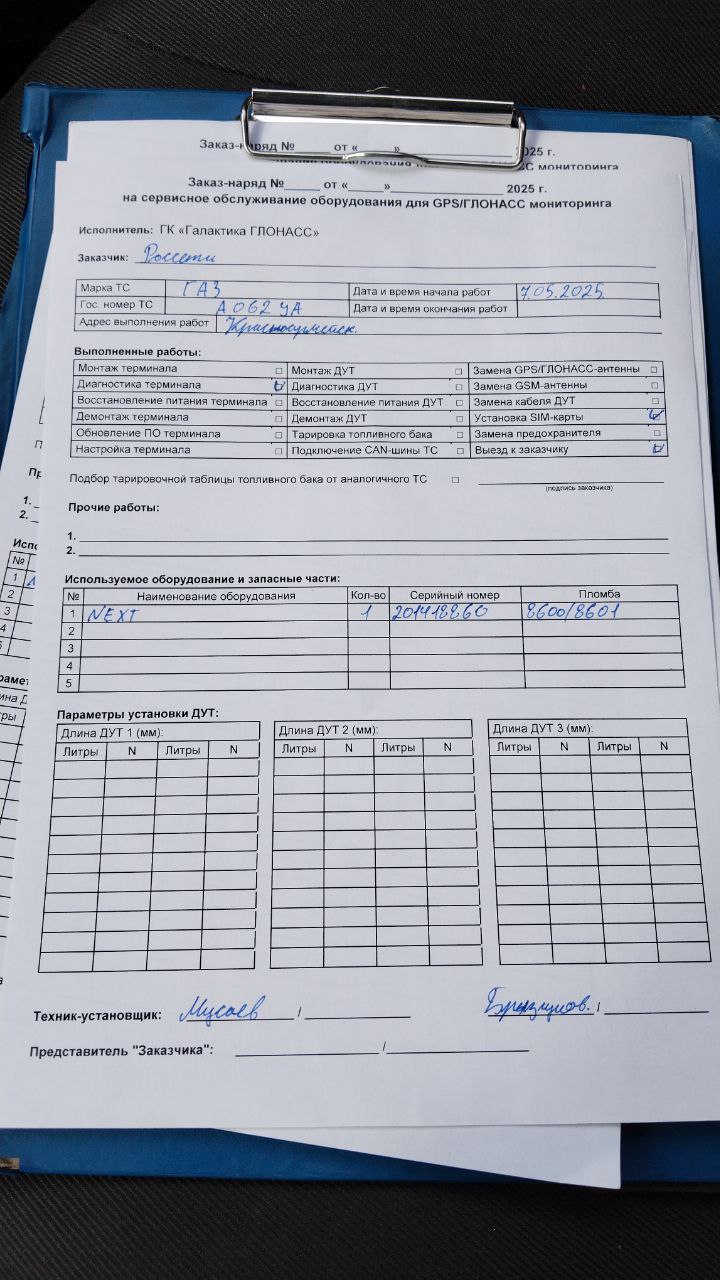 Заказ-наряд № от « » 2025 г.
мониторинга
Заказ-наряд №_____ от «_____»________________ 2025 г.
на сервисное обслуживание оборудования для GPS/ГЛОНАСС мониторинга
Исполнитель: ГК «Галактика ГЛОНАСС»
Заказчик: Россети
Марка ТС ГАЗ Дата и время начала работ 7.05.2025
Гос. номер ТС А 062 УА Дата и время окончания работ
Адрес выполнения работ Красноармейск.
Выполненные работы:
Монтаж терминала □ Монтаж ДУТ □ Замена GPS/ГЛОНАСС-антенны □
Диагностика терминала ☑ Диагностика ДУТ □ Замена GSM-антенны □
Восстановление питания терминала □ Восстановление питания ДУТ □ Замена кабеля ДУТ □
Демонтаж терминала □ Демонтаж ДУТ □ Установка SIM-карты ☑
Обновление ПО терминала □ Тарировка топливного бака □ Замена предохранителя □
Настройка терминала □ Подключение CAN-шины ТС □ Выезд к заказчику ☑
Подбор тарировочной таблицы топливного бака от аналогичного ТС □
(подпись заказчика)
Прочие работы:
1.
2.
Используемое оборудование и запасные части:
№ Наименование оборудования Кол-во Серийный номер Пломба
1 NEXT 1 201418860 8600/8601
2
3
4
5
Параметры установки ДУТ:
Длина ДУТ 1 (мм): Длина ДУТ 2 (мм): Длина ДУТ 3 (мм):
Литры N Литры N Литры N Литры N Литры N Литры N
Техник-установщик: Мусаев / /
Представитель "Заказчика": /